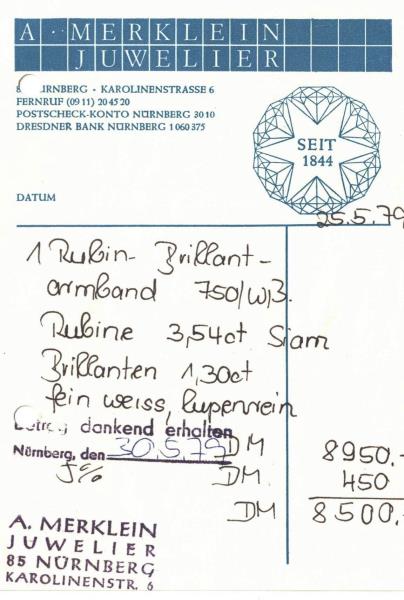 A · MERKLEIN
JUWELIER
8 NÜRNBERG · KAROLINENSTRASSE 6
FERNRUF (09 11) 20 45 20
POSTSCHECK-KONTO NÜRNBERG 30 10
DRESDNER BANK NÜRNBERG 1 060 375
SEIT
1844
DATUM
25.5.79
1 Rubin- Brillant-
armband 750/W,B.
Rubine 3,54ct Siam
Brillanten 1,30ct
fein weiss, lupenrein
Betrag dankend erhalten
Nürnberg, den 30.5.79 DM 8950.-
5% DM. 450
DM 8500.-
A. MERKLEIN
JUWELIER
85 NÜRNBERG
KAROLINENSTR. 6